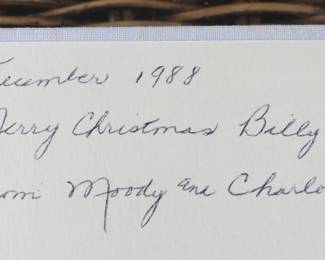 December 1988
Merry Christmas Billy
From Moody and Charlo